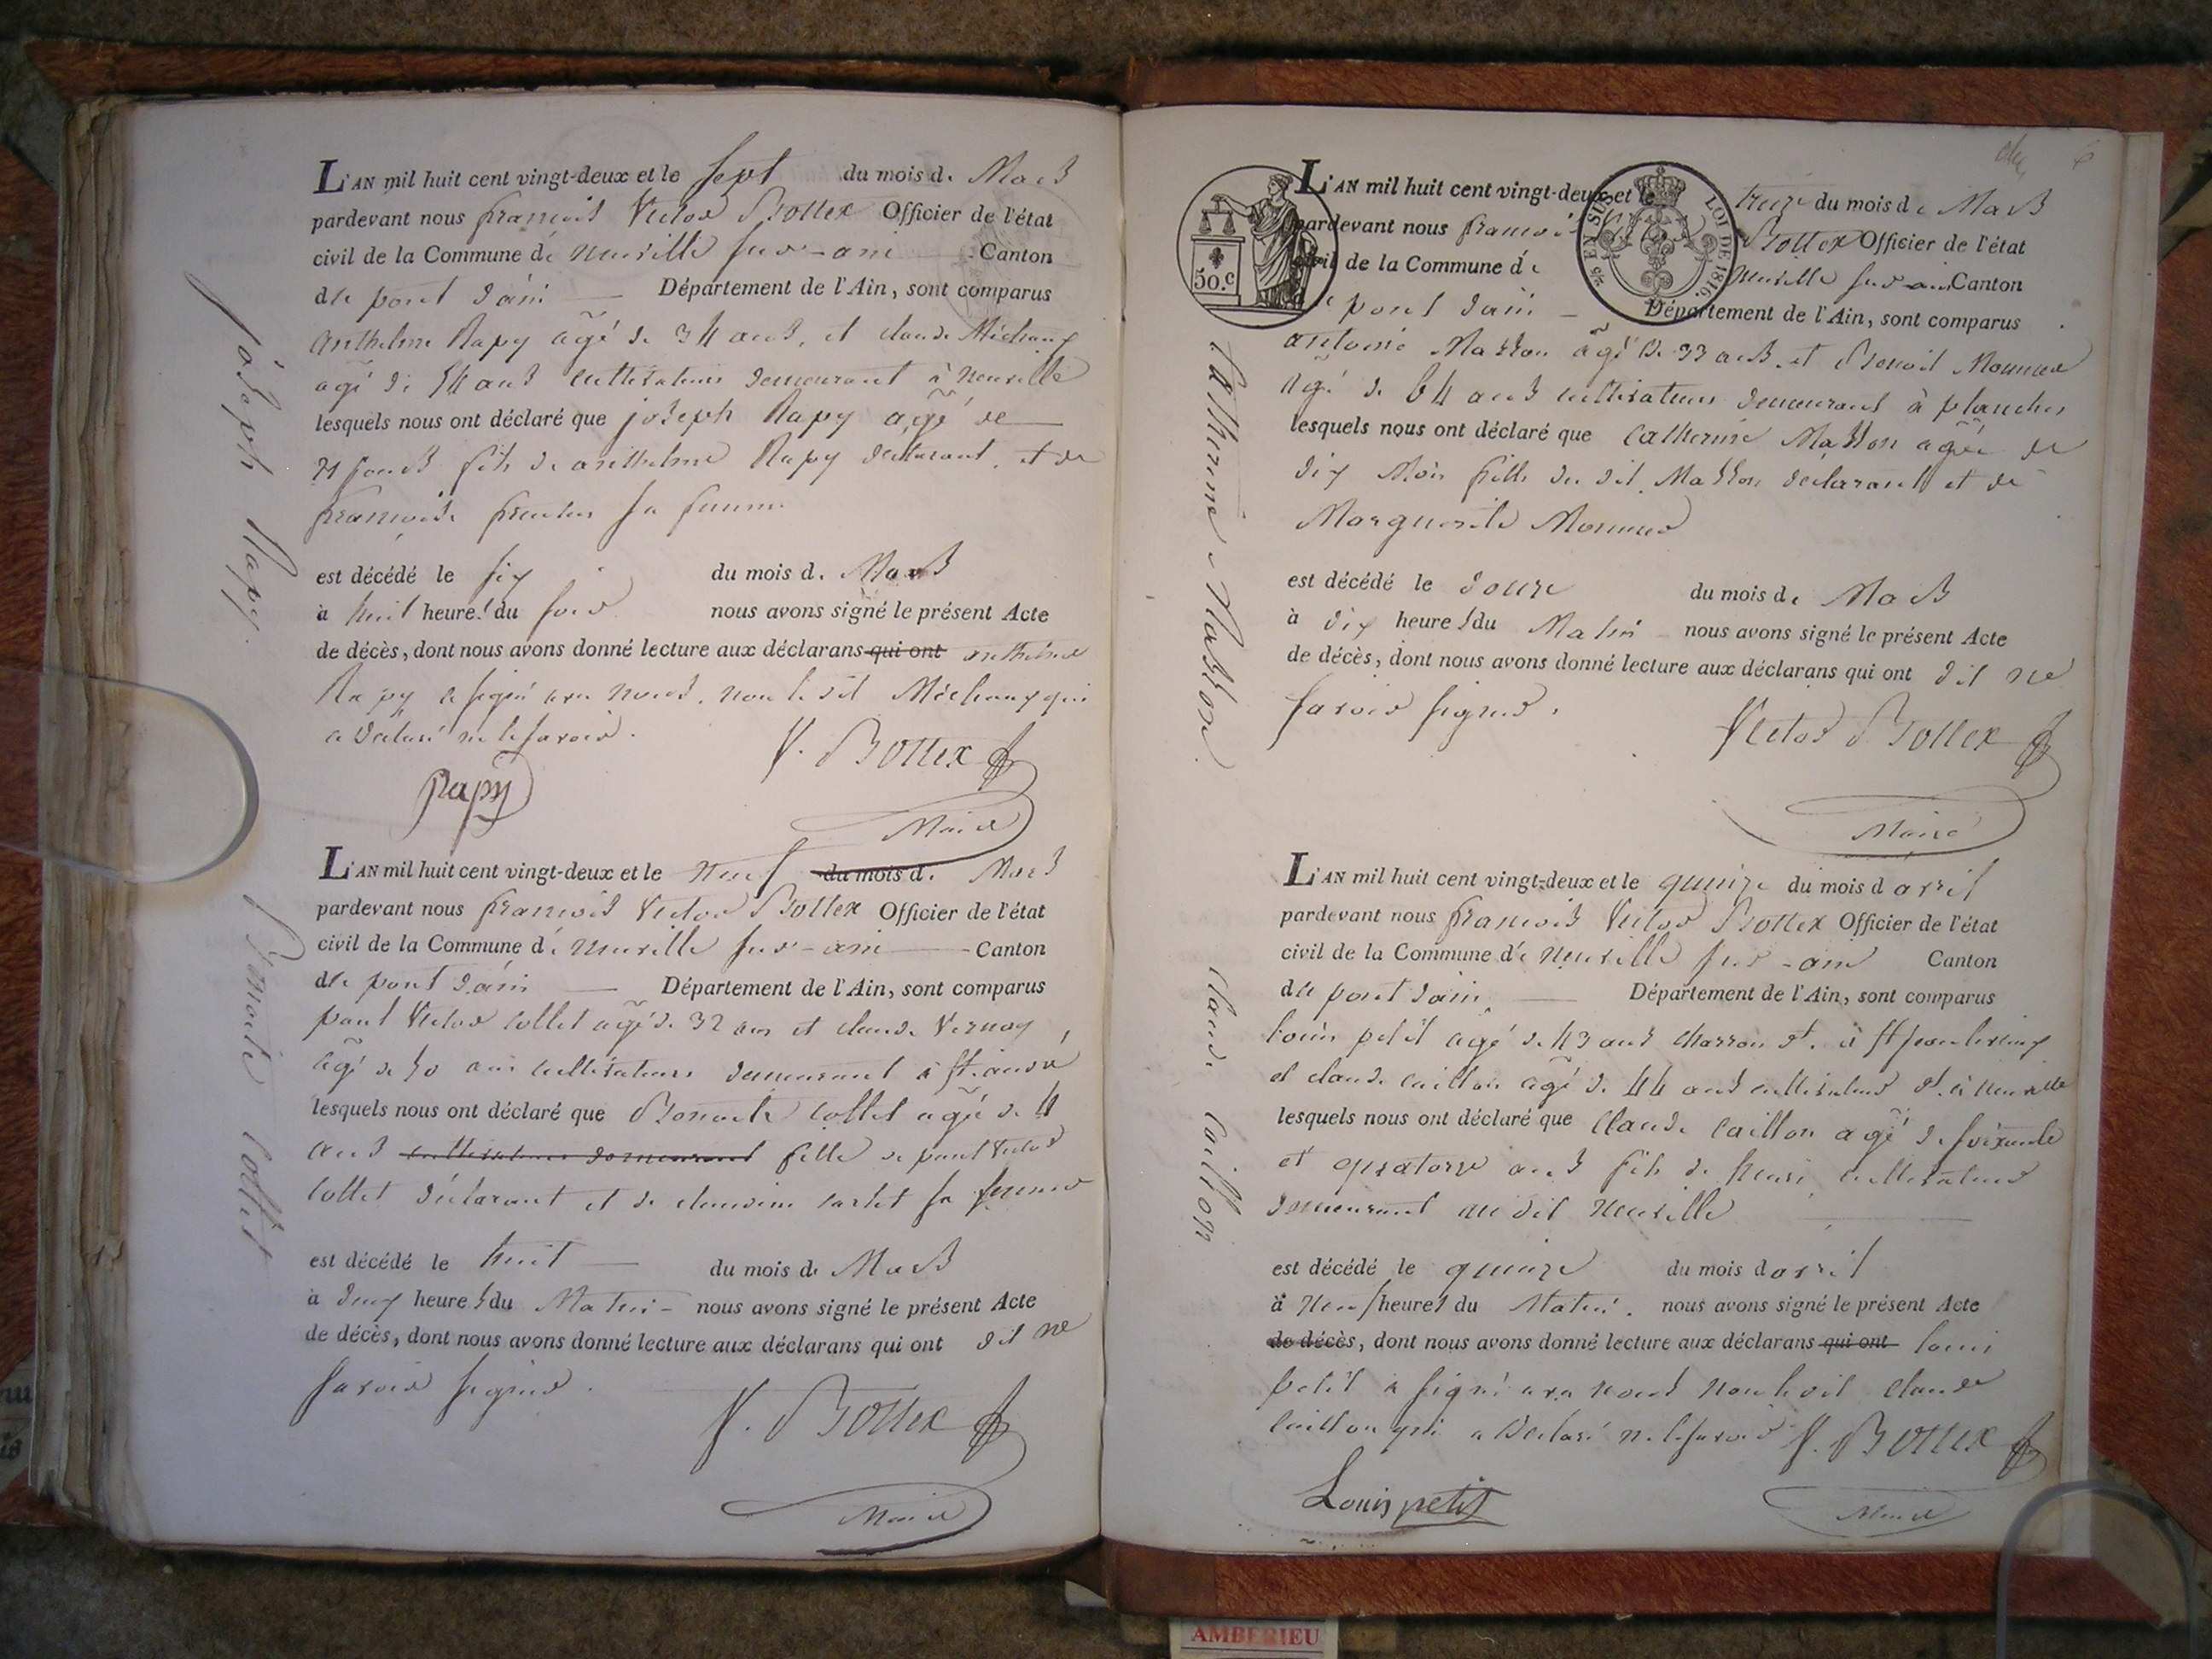 L'AN mil huit cent vingt-deux et le sept du mois de Mars
pardevant nous françois Victor Bottex Officier de l'état
civil de la Commune de neuville sur-ain Canton
de pont dain Département de l'Ain, sont comparus
anthelme Rapy agé de 34 ans, et claude Michaux
agé de 54 ans cultivateurs demeurant à Neuville
lesquels nous ont déclaré que joseph Rapy agé de
jours fils de anthelme Rapy déclarant, et de
françoise sa femme
est décédé le six du mois de Mars
à huit heures du soir nous avons signé le présent Acte
de décès, dont nous avons donné lecture aux déclarans qui ont anthelme
Rapy a signé avec nous, non le dit Michaux qui
a declaré ne le savoir.
V. Bottex
Rapy
Maire
joseph Rapy.
L'AN mil huit cent vingt-deux et le neuf du mois d. Mars
pardevant nous françois Victor Bottex Officier de l'état
civil de la Commune de neuville sur-ain Canton
de pont dain Département de l'Ain, sont comparus
paul Victor collet agé de 32 ans et claude Vernoy
agé de 50 ans cultivateurs demeurant à
lesquels nous ont déclaré que Benoite collet agé de 4
ans cultivateurs demeurant fille de paul Victor
collet déclarant et de claudine sa femme
est décédé le huit du mois de Mars
à deux heures du Matin nous avons signé le présent Acte
de décès, dont nous avons donné lecture aux déclarans qui ont dit ne
savoir signer.
V. Bottex
Maire
Benoite collet
6
50.c
EN SUS
LOI DE 1816.
L'AN mil huit cent vingt-deux et le treize du mois de Mars
pardevant nous françois Bottex Officier de l'état
civil de la Commune de Neuville sur ain Canton
de pont dain Département de l'Ain, sont comparus
antoine Masson agé de 33 ans et Benoit Monnier
agé de 64 ans cultivateurs demeurant à planches
lesquels nous ont déclaré que catherine Masson agée de
dix Mois fille du dit Masson declarant et de
Marguerite Monnier
est décédé le douze du mois de Mars
à dix heures du Matin nous avons signé le présent Acte
de décès, dont nous avons donné lecture aux déclarans qui ont dit ne
savoir signer.
Victor Bottex
Maire
catherine Masson
L'AN mil huit cent vingt-deux et le quinze du mois d avril
pardevant nous françois Victor Bottex Officier de l'état
civil de la Commune de Neuville sur-ain Canton
de pont dain Département de l'Ain, sont comparus
louis petit agé de 43 ans charron dt. à
et claude caillon agé de 44 ans cultivateur dt. à neuville
lesquels nous ont déclaré que claude caillon agé de soixante
et quatorze ans fils de henri cultivateur
demeurant au dit Neuville
est décédé le quinze du mois d avril
à Neuf heures du Matin. nous avons signé le présent Acte
de décès, dont nous avons donné lecture aux déclarans qui ont louis
petit a signé avec nous non le dit claude
caillon qui a declaré ne le savoir V. Bottex
Louis petit
Maire
claude caillon
AMBERIEU